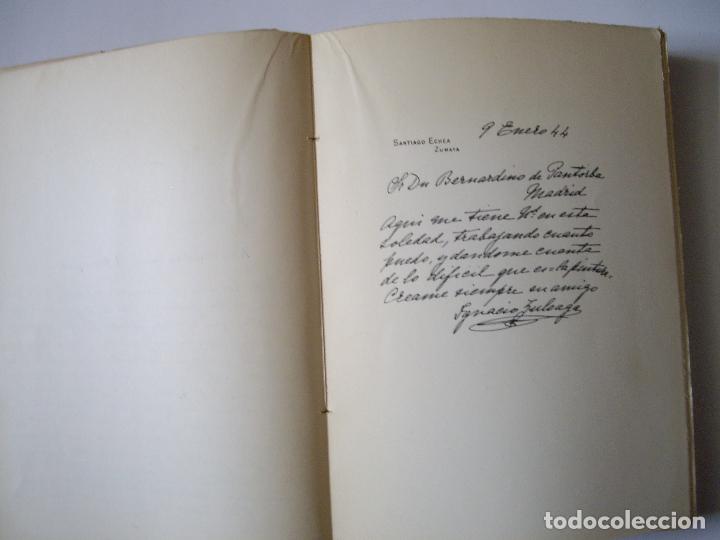 9 Enero 44
SANTIAGO ECHEA
ZUMAYA
Sr Dn Bernardino de Pantorba
Madrid
Aqui me tiene Ud. en esta
soledad, trabajando cuanto
puedo, y dandome cuenta
de lo dificil que es la pintura.
Creame siempre su amigo
Ignacio Zuloaga
todocoleccion